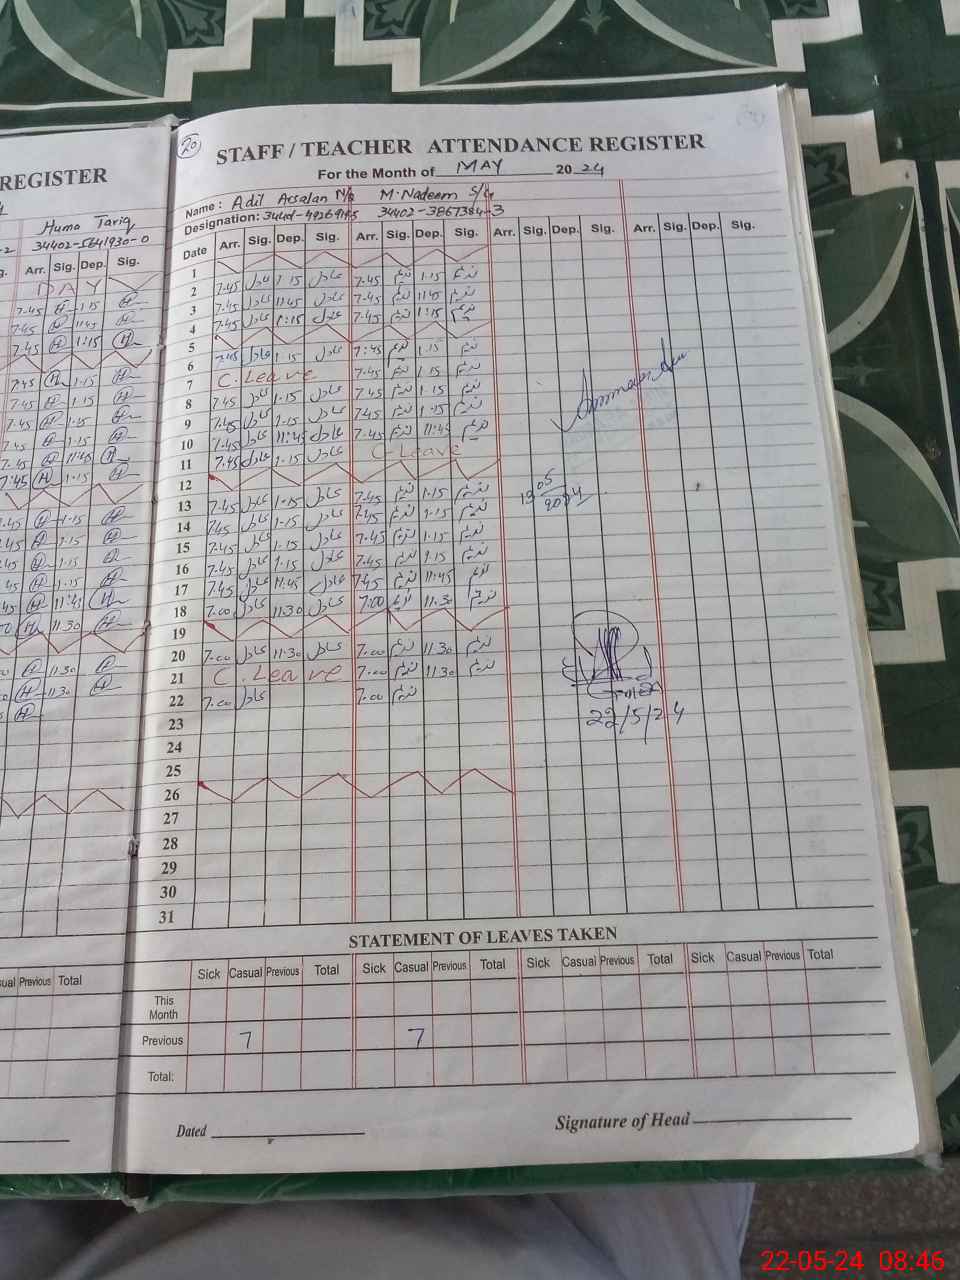 REGISTER
Huma Tariq
34402-5641930-0
Arr. Sig. Dep. Sig.
DAY
7.45 1.15
7.45 11.45
7.45 1.15
7.45 1.15
7.45 1.15
7.45 1.15
7.45 1.15
7.45 11.45
7:45 1.15
7.45 1.15
7.45 1.15
7.45 1.15
7.45 1.15
7.45 11.45
11.30
11.30
11.30
Previous Total
20
STAFF / TEACHER ATTENDANCE REGISTER
For the Month of MAY 2024
Name : Adil Arsalan N/Q M. Nadeem S/G
Designation: 34402-3867384-3
Date Arr. Sig. Dep. Sig. Arr. Sig. Dep. Sig. Arr. Sig. Dep. Sig. Arr. Sig. Dep. Sig.
1
2 7.45 عادل 1.15 عادل 7.45 ندیم 1.15 ندیم
3 7.45 عادل 11.45 عادل 7.45 ندیم 11.45 ندیم
4 7.45 عادل 1:15 عادل 7.45 ندیم 1:15 ندیم
5
6 7.45 عادل 1.15 عادل 7:45 ندیم 1.15 ندیم
7 C. Leave 7.45 ندیم 1.15 ندیم
8 7.45 عادل 1.15 عادل 7.45 ندیم 1.15 ندیم
9 7.45 عادل 1.15 عادل 7.45 ندیم 1.15 ندیم
10 7.45 عادل 11:45 عادل 7.45 ندیم 11.45 ندیم
11 7.45 عادل 1.15 عادل C-Leave
12
13 7.45 عادل 1.15 عادل 7.45 ندیم 1.15 ندیم
14 7.45 عادل 1.15 عادل 7.45 ندیم 1.15 ندیم
15 7.45 عادل 1.15 عادل 7.45 ندیم 1.15 ندیم
16 7.45 عادل 1.15 عادل 7.45 ندیم 1.15 ندیم
17 7.45 عادل 11.45 عادل 7.45 ندیم 11.45 ندیم
18 7.00 عادل 11.30 عادل 7.00 ندیم 11.30 ندیم
19
20 7.00 عادل 11.30 عادل 7.00 ندیم 11.30 ندیم
21 C. Leave 7.00 ندیم 11.30 ندیم
22 7.00 عادل 7.00 ندیم
22/5/24
23
24
25
26
27
28
29
30
31
STATEMENT OF LEAVES TAKEN
Sick Casual Previous Total Sick Casual Previous Total Sick Casual Previous Total Sick Casual Previous Total
This Month
Previous 7 7
Total:
Dated
Signature of Head
22-05-24 08:46